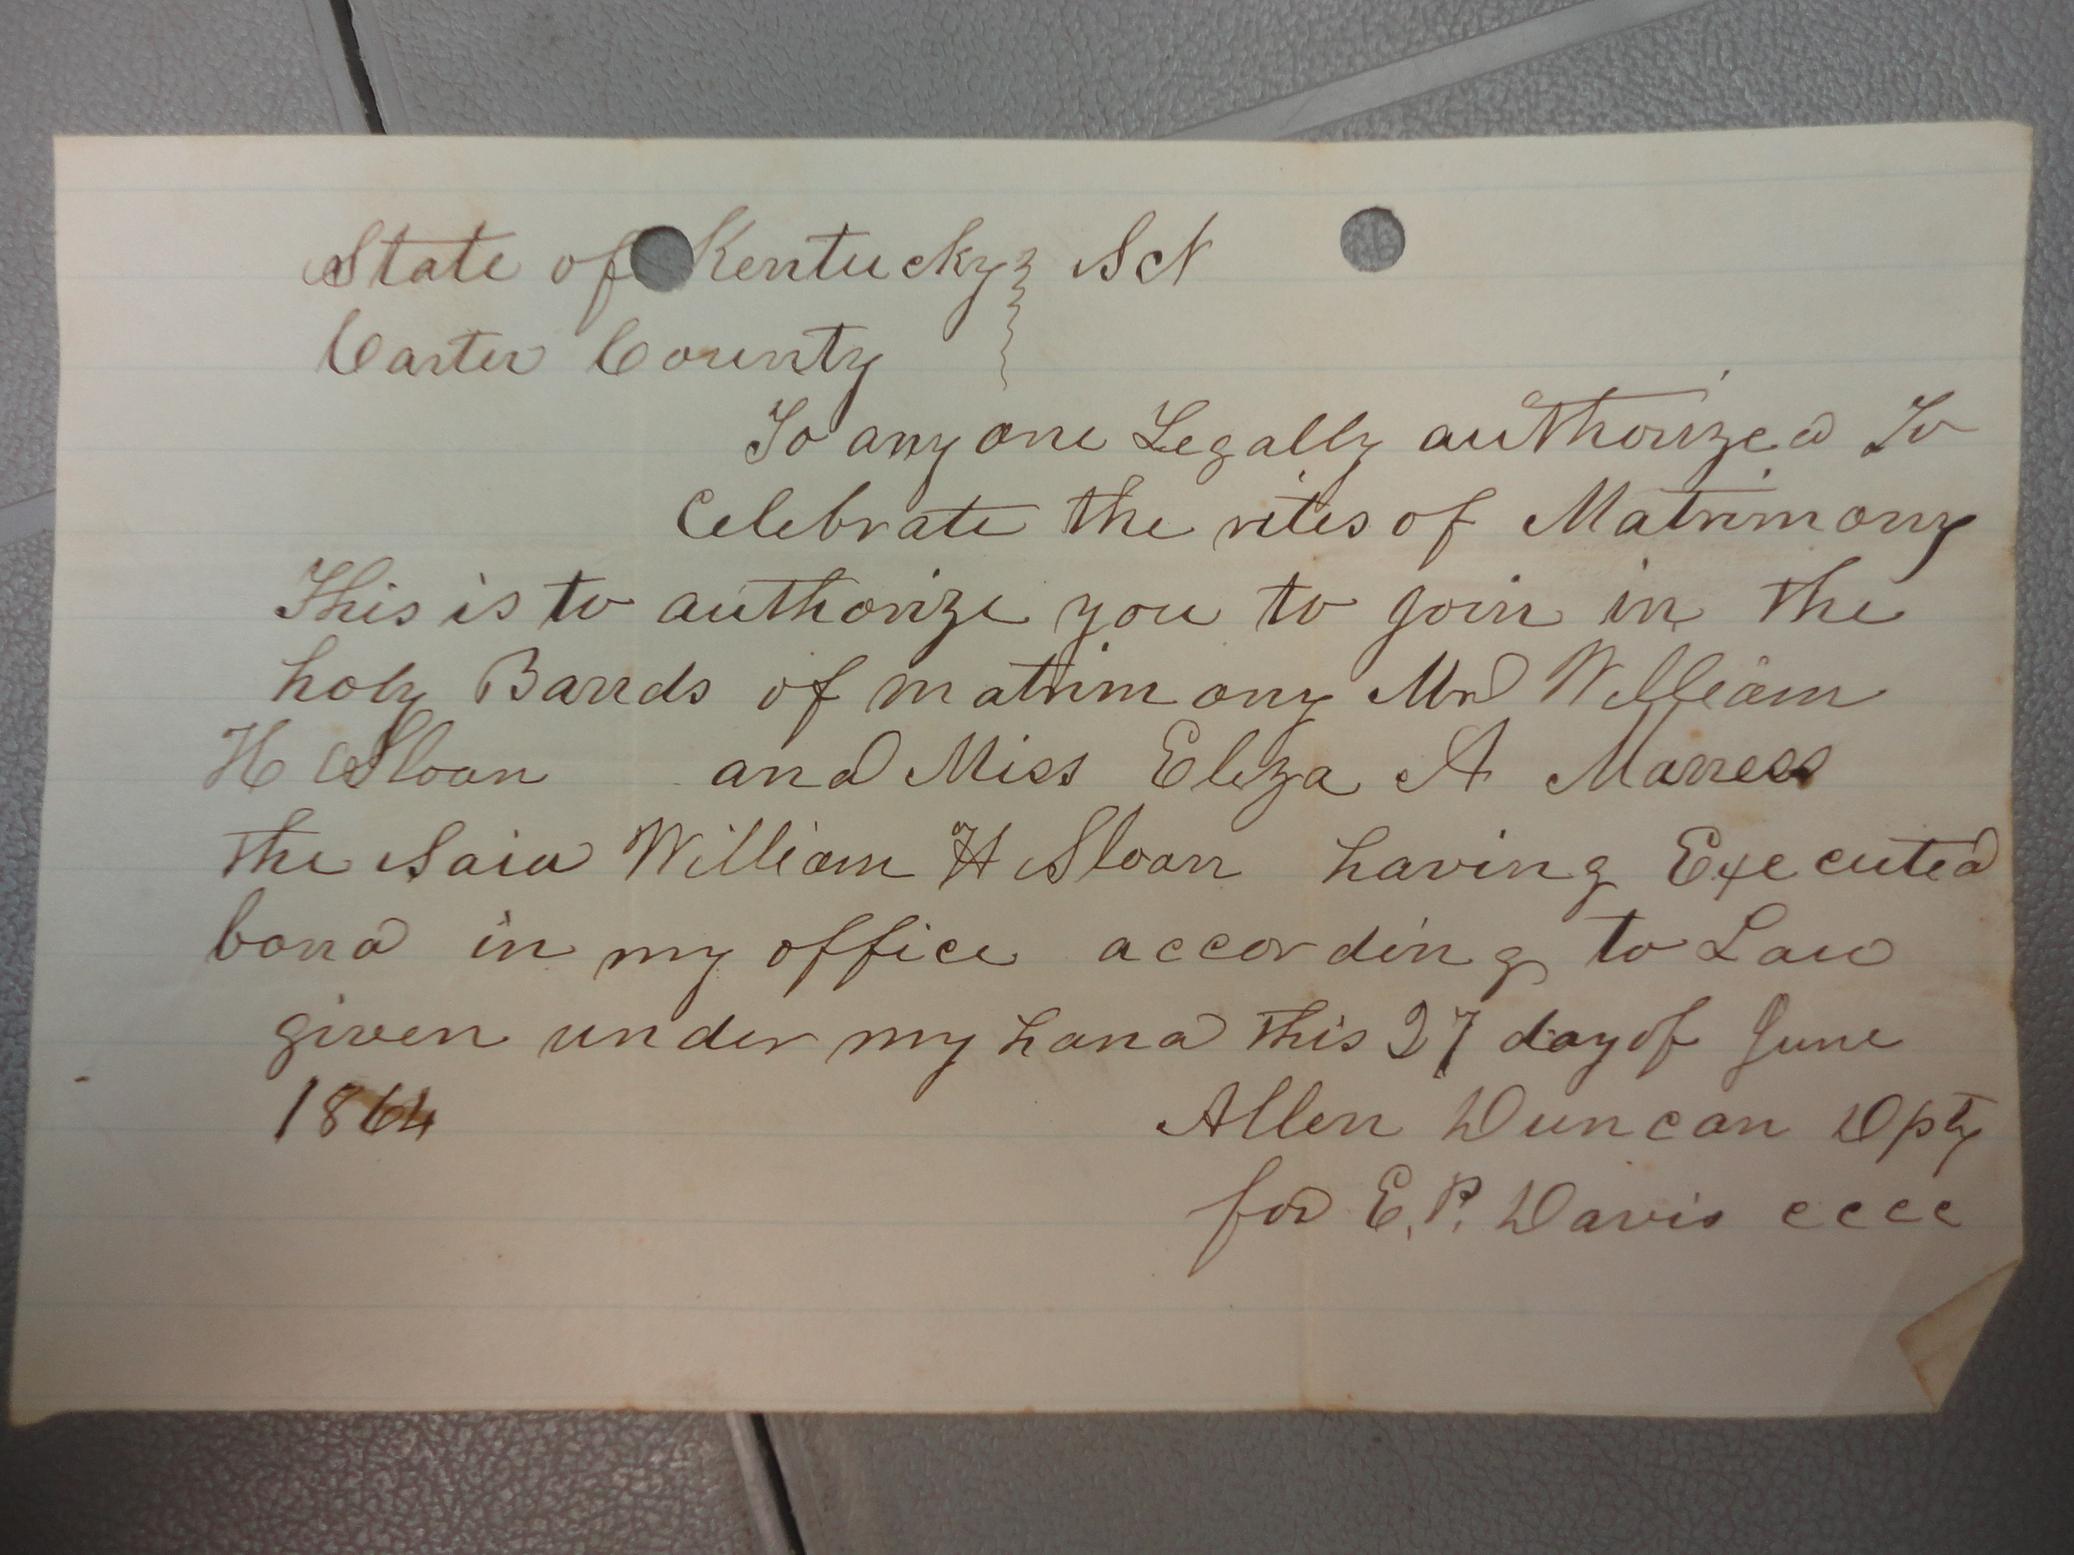 State of Kentucky } Sct
Carter County }
To any one Legally authorized To
Celebrate the rites of Matrimony
This is to authorize you to join in the
holy Bands of matrimony Mr William
H Sloan and Miss Eliza A
the Said William H Sloan having Executed
bond in my office according to Law
given under my hand this 27 day of June
1864
Allen Duncan Dpty
for E. P. Davis cccc